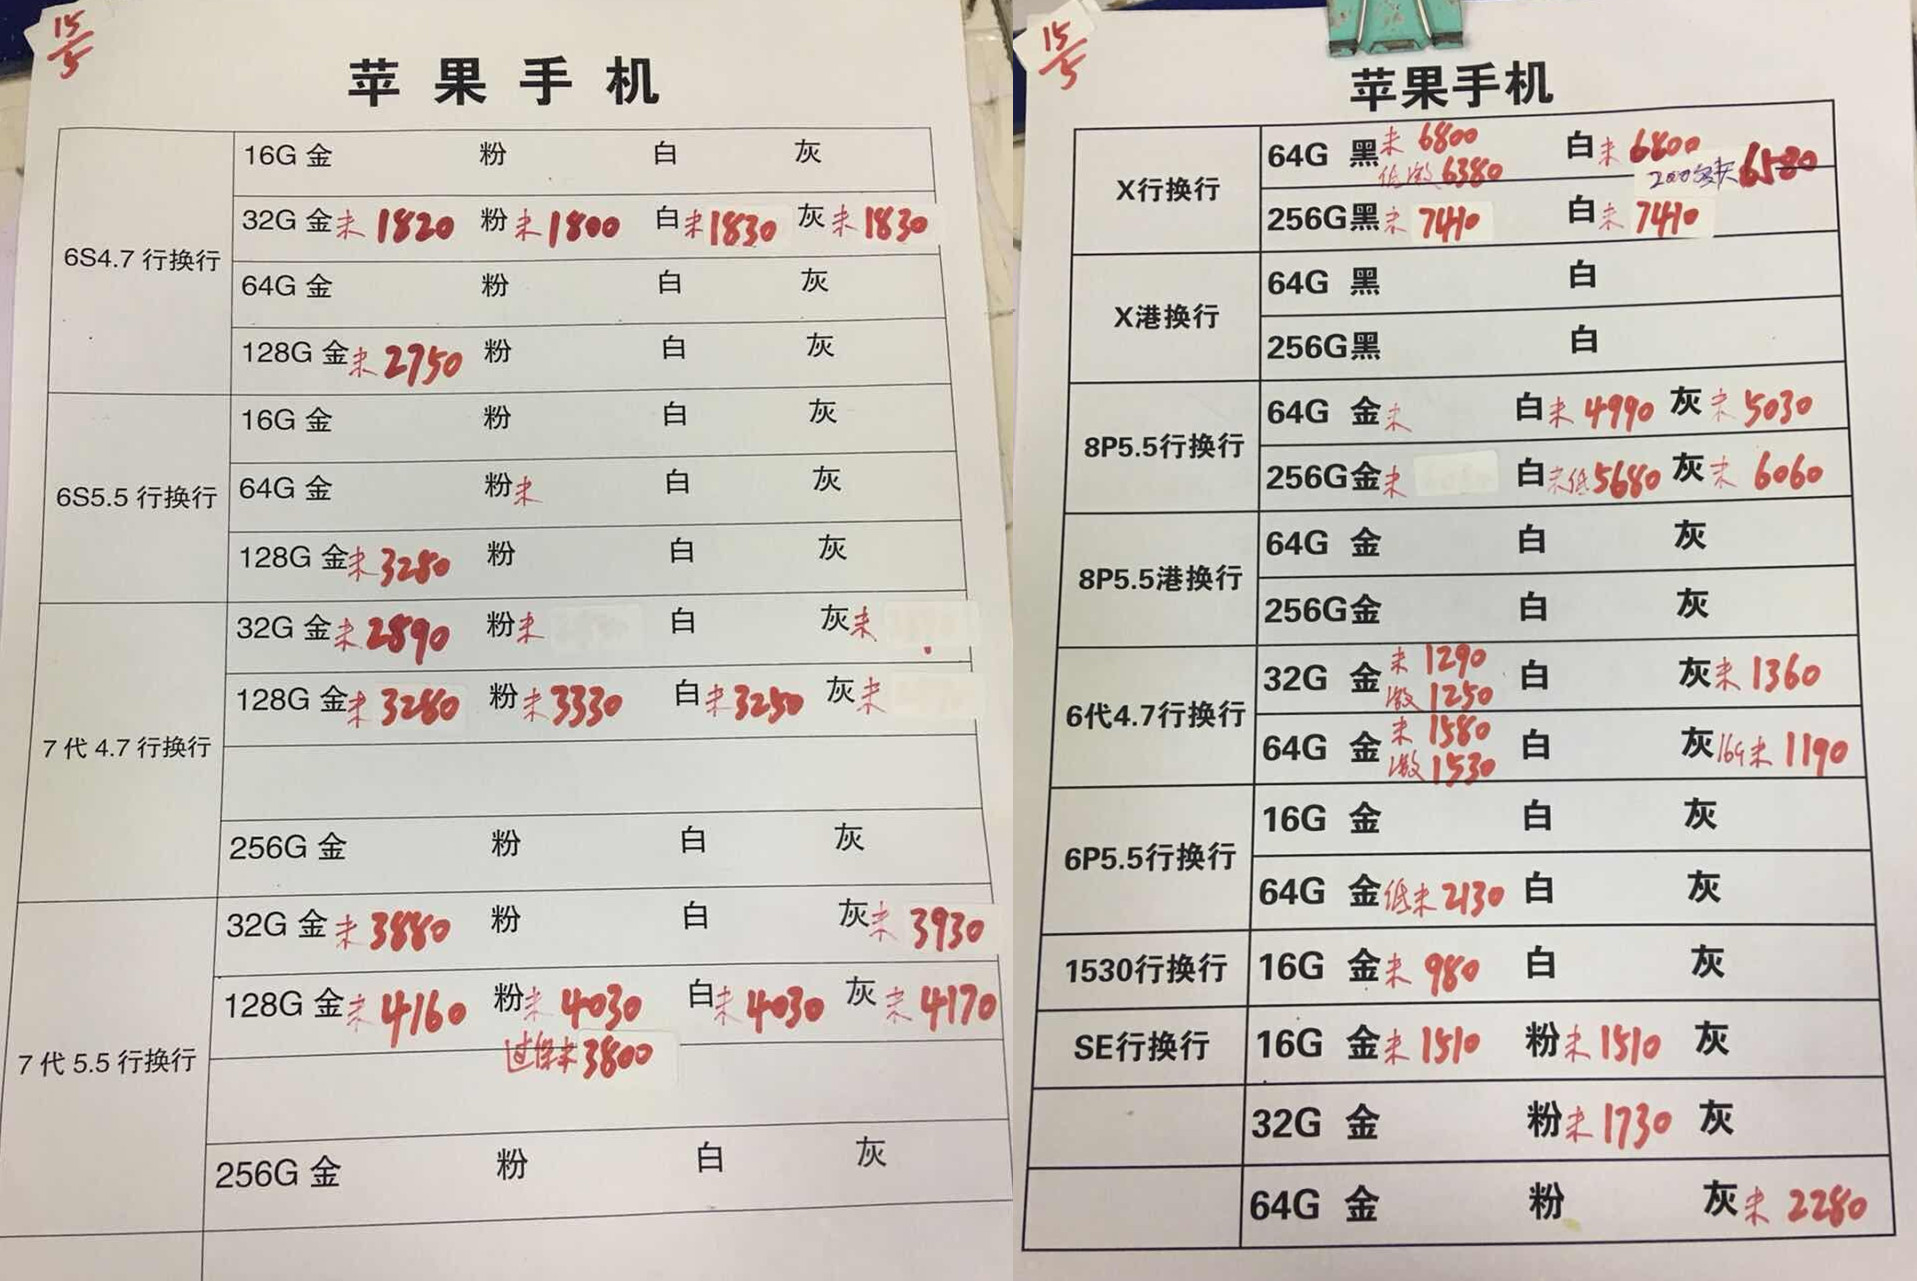 15/5
苹果手机
6S4.7 行换行
16G 金 粉 白 灰
32G 金未 1820 粉未 1800 白未 1830 灰未 1830
64G 金 粉 白 灰
128G 金未 2750 粉 白 灰
6S5.5 行换行
16G 金 粉 白 灰
64G 金 粉未 白 灰
128G 金未 3280 粉 白 灰
7 代 4.7 行换行
32G 金未 2890 粉未 白 灰未
128G 金未 3280 粉未 3330 白未 3250 灰未
256G 金 粉 白 灰
7 代 5.5 行换行
32G 金未 3880 粉 白 灰未 3930
128G 金未 4160 粉未 4030 白未 4030 灰未 4170
过保未 3800
256G 金 粉 白 灰
15/5
苹果手机
X行换行
64G 黑未 6800 白未 6800
低激 6380 6580
256G黑未 7410 白未 7410
X港换行
64G 黑 白
256G黑 白
8P5.5行换行
64G 金未 白未 4990 灰未 5030
256G金未 白未低5680 灰未 6060
8P5.5港换行
64G 金 白 灰
256G金 白 灰
6代4.7行换行
32G 金未 1290 白 灰未 1360
激 1250
64G 金未 1580 白 灰16G未 1190
激 1530
6P5.5行换行
16G 金 白 灰
64G 金低未 2130 白 灰
1530行换行
16G 金未 980 白 灰
SE行换行
16G 金未 1510 粉未 1510 灰
32G 金 粉未 1730 灰
64G 金 粉 灰未 2280